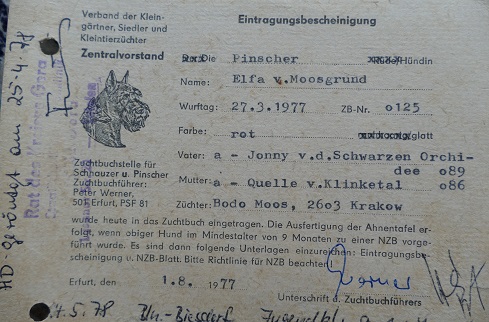 Verband der Klein-
gärtner, Siedler und
Kleintierzüchter
Zentralvorstand
Eintragungsbescheinigung
Die Pinscher Hündin
Name: Elfa v.Moosgrund
Wurftag: 27.3.1977 ZB-Nr. o125
Farbe: rot glatt
Vater: a - Jonny v.d.Schwarzen Orchi-
dee o89
Mutter: a - Quelle v.Klinketal o86
Züchter: Bodo Moos, 26o3 Krakow
Zuchtbuchstelle für
Schnauzer u. Pinscher
Zuchtbuchführer:
Peter Werner,
501 Erfurt, PSF 81
wurde heute in das Zuchtbuch eingetragen. Die Ausfertigung der Ahnentafel er-
folgt, wenn obiger Hund im Mindestalter von 9 Monaten zu einer NZB vorge-
führt wurde. Es sind dann folgende Unterlagen einzureichen: Eintragungsbe-
scheinigung u. NZB-Blatt. Bitte Richtlinie für NZB beachten
Erfurt, den 1.8. 1977
Werner
Unterschrift d. Zuchtbuchführers
HD-geröndgt am 25.4.78
Rat des
Gera